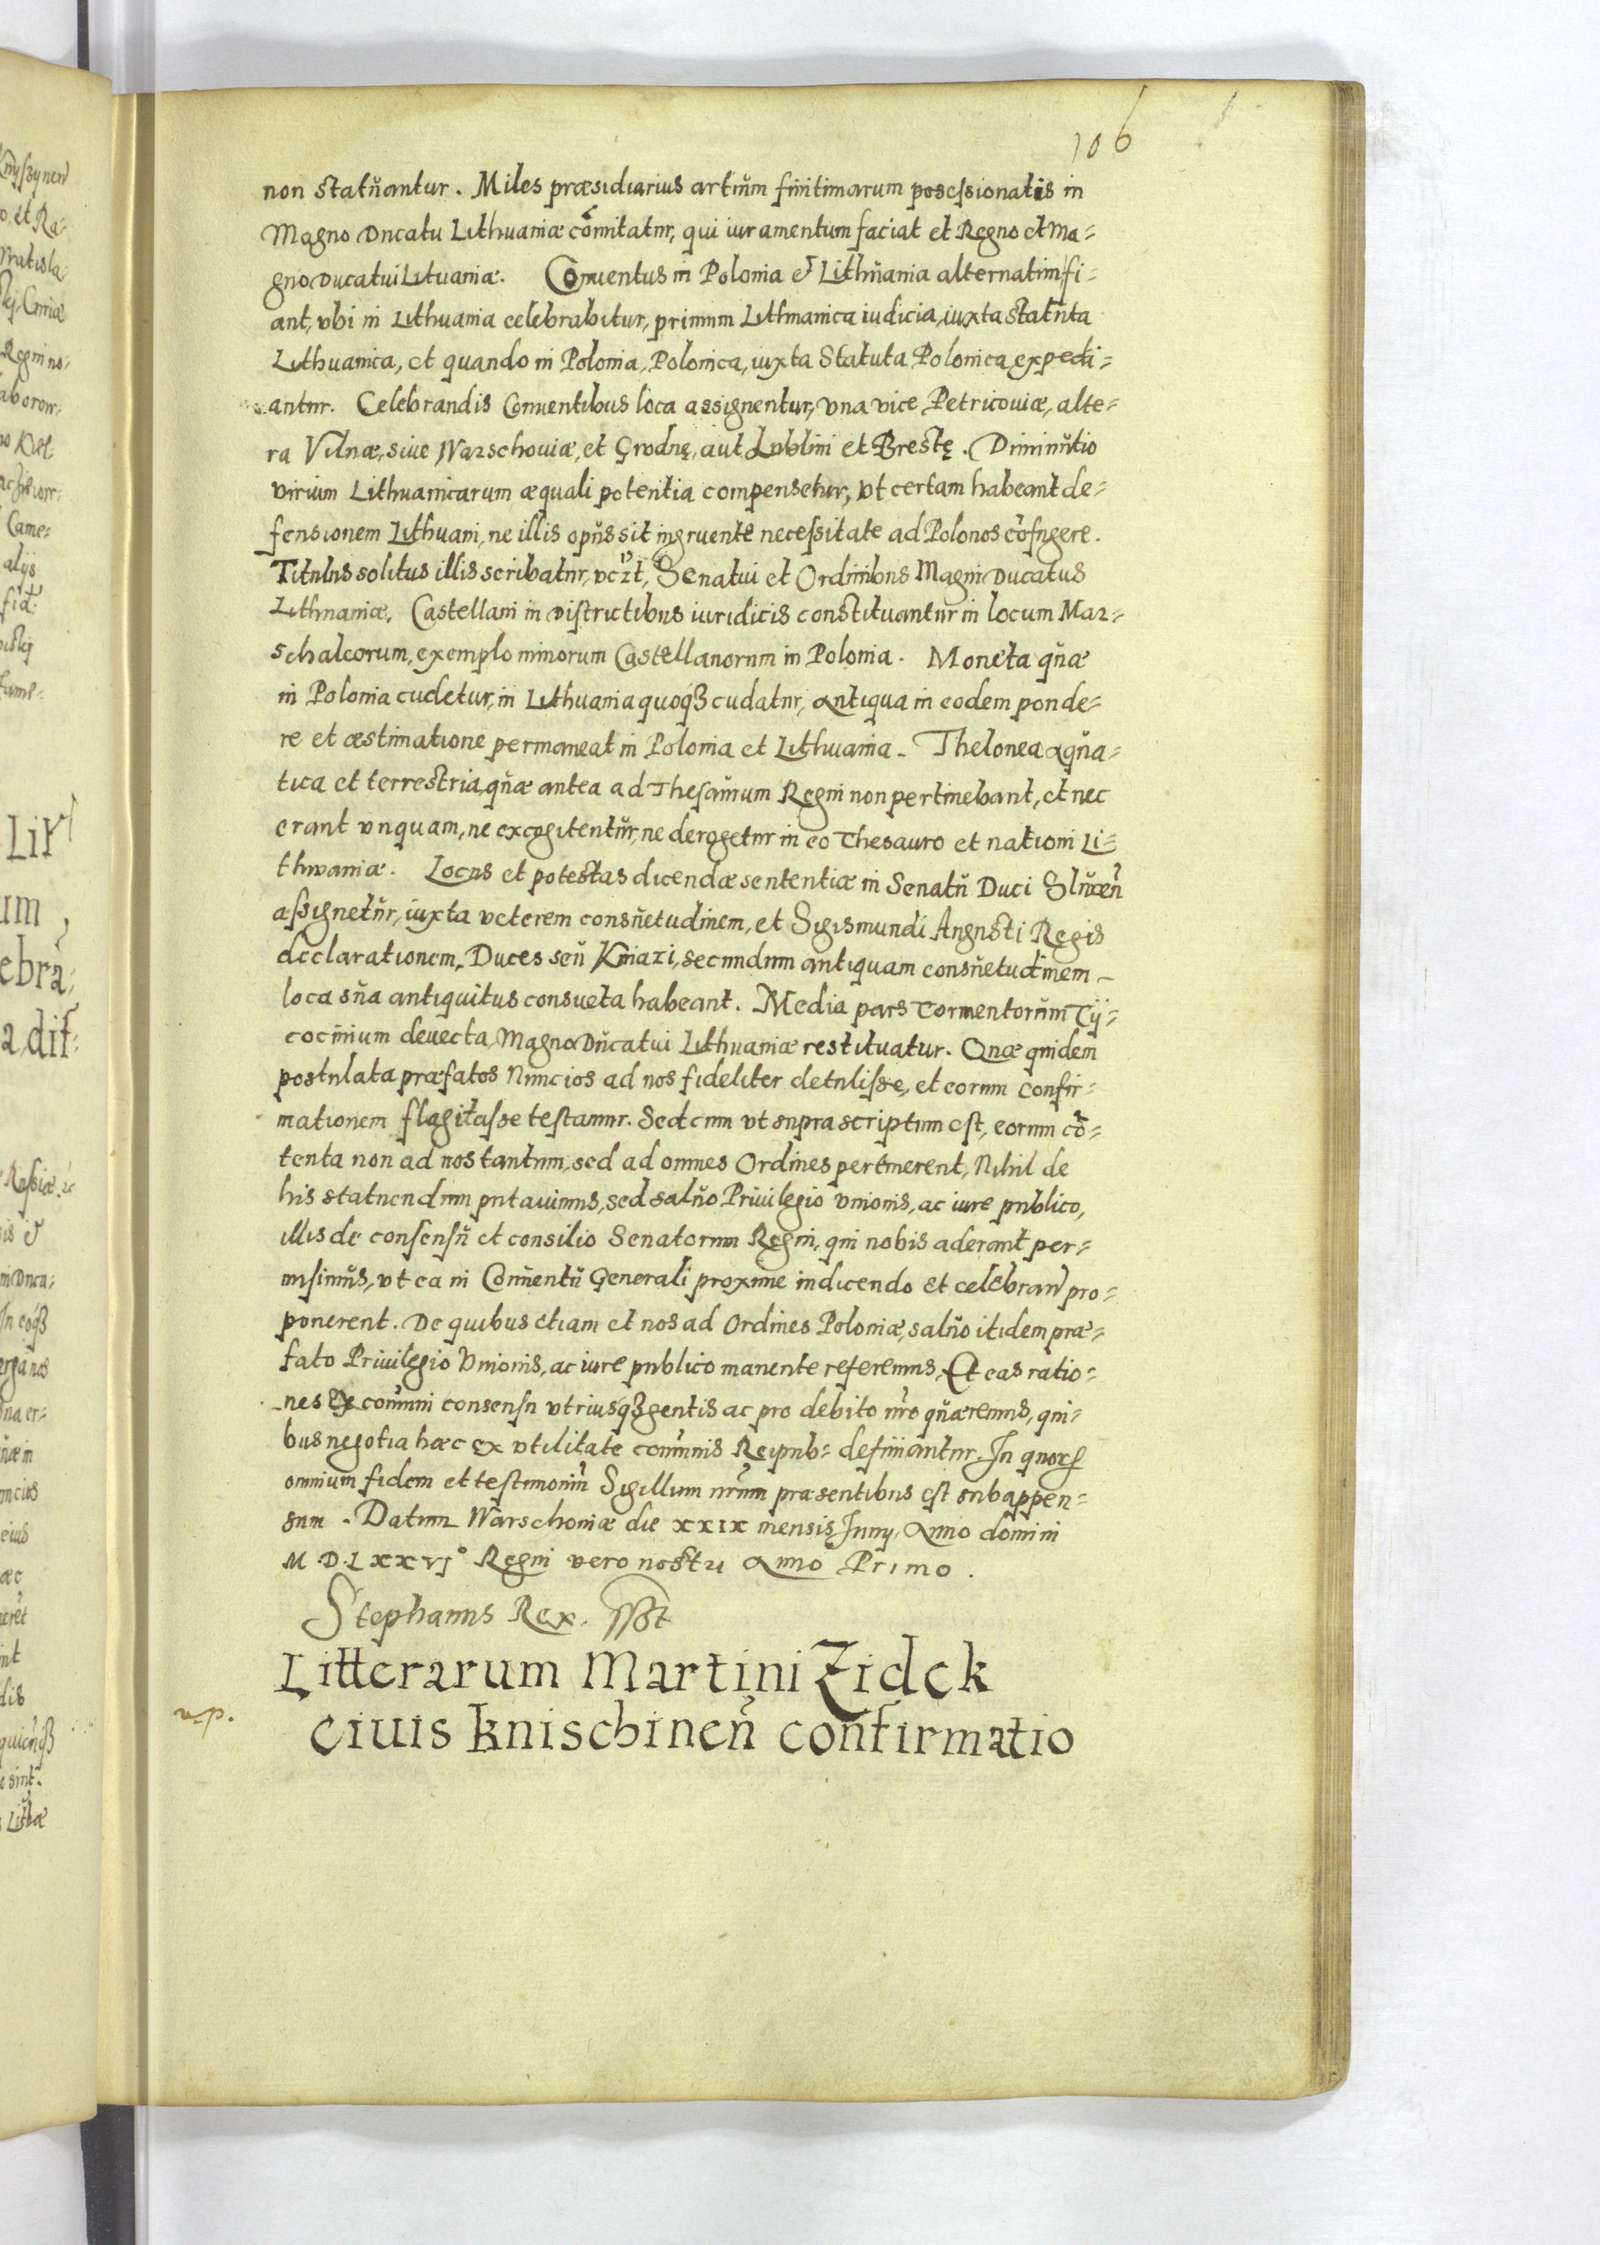 106
non statŭantur. Miles præsidiarius artiŭm finitimarum posessionatis in
Magno Ducatu Lithuaniæ cōmitatur, qui iuramentum faciat et Regno et Ma=
gno Ducatui Lituaniæ. Conuentus in Polonia et Lithŭania alternatim fi=
ant, vbi in Lithuania celebrabitur, primum Lithuanica iudicia, iuxta statŭta
Lithuanica, et quando in Polonia, Polonica, iuxta Statuta Polonica expedi=
antur. Celebrandis Conuentibus loca assignentur, vna vice Petricouiæ, alte=
ra Vilnæ, siue Warschouiæ, et Grodnę, aut Lublini et Brestę. Diminŭtio
virium Lithuanicarum æquali potentia compensetur, vt certam habeant de=
fensionem Lithuani, ne illis opŭs sit ingruente necessitate ad Polonos cōfugere.
Titulus solitus illis scribatur, Senatui et Ordinibus Magni Ducatus
Lithuaniæ, Castellani in districtibus iuridicis constituantur in locum Mar=
schalcorum, exemplo minorum Castellanorum in Polonia. Moneta qŭæ
in Polonia cudetur, in Lithuania quoqȝ cudatur, antiqua in eodem ponde=
re et æstimatione permaneat in Polonia et Lithuania. Thelonea aqŭa=
tica et terrestria, qŭæ antea ad Thesaŭrum Regni non pertinebant, et nec
erant vnquam, ne excogitentŭr, ne derogetur in eo Thesauro et nationi Li=
thwaniæ. Locus et potestas dicendæ sententiæ in Senatŭ Duci Slŭceñ
assignetŭr, iuxta veterem consŭetudinem, et Sigismundi Augusti Regis
declarationem, Duces seŭ Kniazi, secundum antiquam consŭetudinem
loca sŭa antiquitus consueta habeant. Media pars Tormentorŭm Tÿ=
cocinium deuecta, Magno Dŭcatui Lithuaniæ restituatur. Quæ quidem
postulata præfatos Nuncios ad nos fideliter detulisse, et eorum confir=
mationem flagitasse testamur. Sed cum vt supra scriptum est, eorum cō=
tenta non ad nos tantum, sed ad omnes Ordines pertinerent, Nihil de
his statuendum putauimus, sed salŭo Priuilegio vnionis, ac iure publico,
illis de consensŭ et consilio Senatorum Regni, qui nobis aderant per=
misimŭs, vt ea in Conŭentŭ Generali proxime indicendo et celebran pro=
ponerent. De quibus etiam et nos ad Ordines Poloniæ, salŭo itidem præ=
fato Priuilegio Vnionis, ac iure publico manente referemus, Et eas ratio=
nes ex com̃uni consensu vtriusqȝ gentis ac pro debito nr̃o qŭæremus, qui=
bus negotia hæc ex vtilitate com̃unis Reipub= definiantur. In quorꝝ
omnium fidem et testimoniũ Sigillum nr̃um præsentibus est subappen=
sum. Datum Warschouiæ die xxix mensis Iunij, Anno domini
M.D.Lxxvj° Regni vero nostri Anno Primo.
Stephanus Rex. sspt
Litterarum Martini Zidek
ciuis knischineñ confirmatio